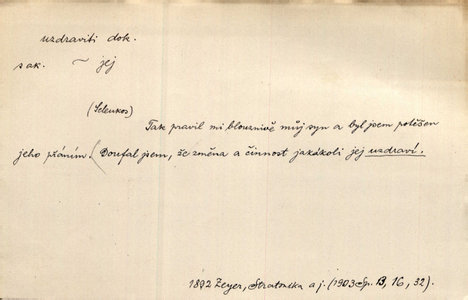 uzdraviti dok.
s ak. ~ jej
(Seleukos)
Tak pravil mi blouznivě můj syn a byl jsem potěšen
jeho přáním. (Doufal jsem, že změna a činnost jakákoli jej uzdraví.
1892 Zeyer, Stratonika a j. (1903 Sp. B, 16, 32).